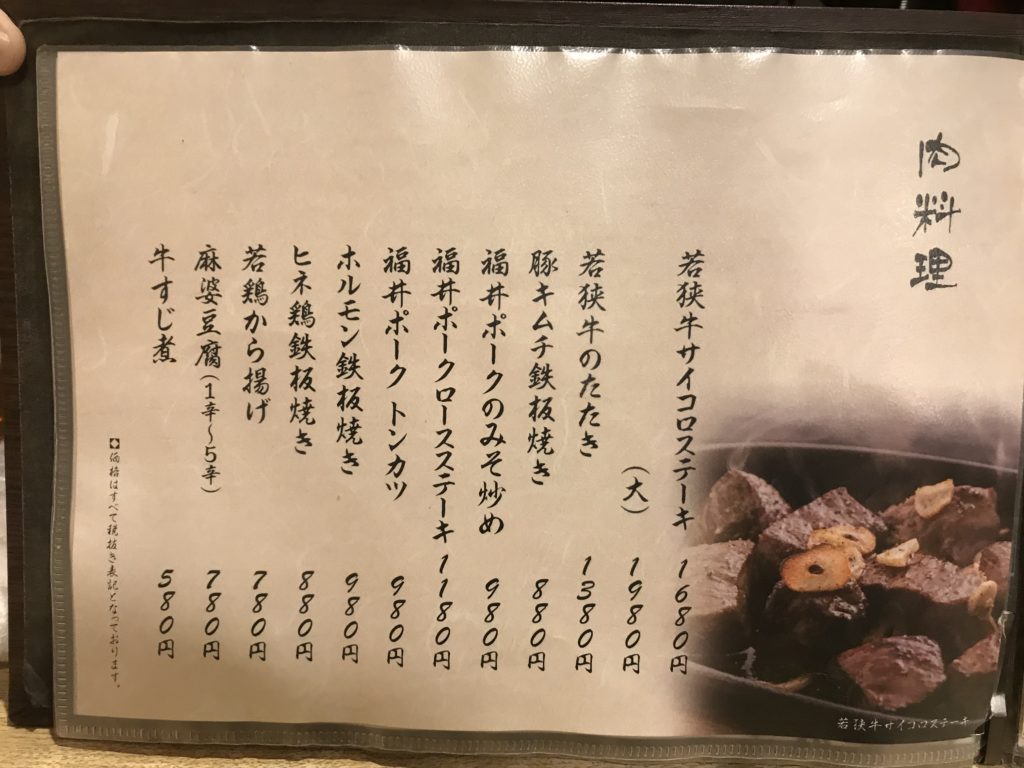 肉料理
若狭牛サイコロステーキ 1680円
(大) 1980円
若狭牛のたたき 1380円
豚キムチ鉄板焼き 880円
福井ポークのみそ炒め 980円
福井ポークロースステーキ 1180円
福井ポーク トンカツ 980円
ホルモン鉄板焼き 980円
ヒネ鶏鉄板焼き 880円
若鶏から揚げ 780円
麻婆豆腐(1辛~5辛) 780円
牛すじ煮 580円
価格はすべて税抜き表記となっております。
若狭牛サイコロステーキ